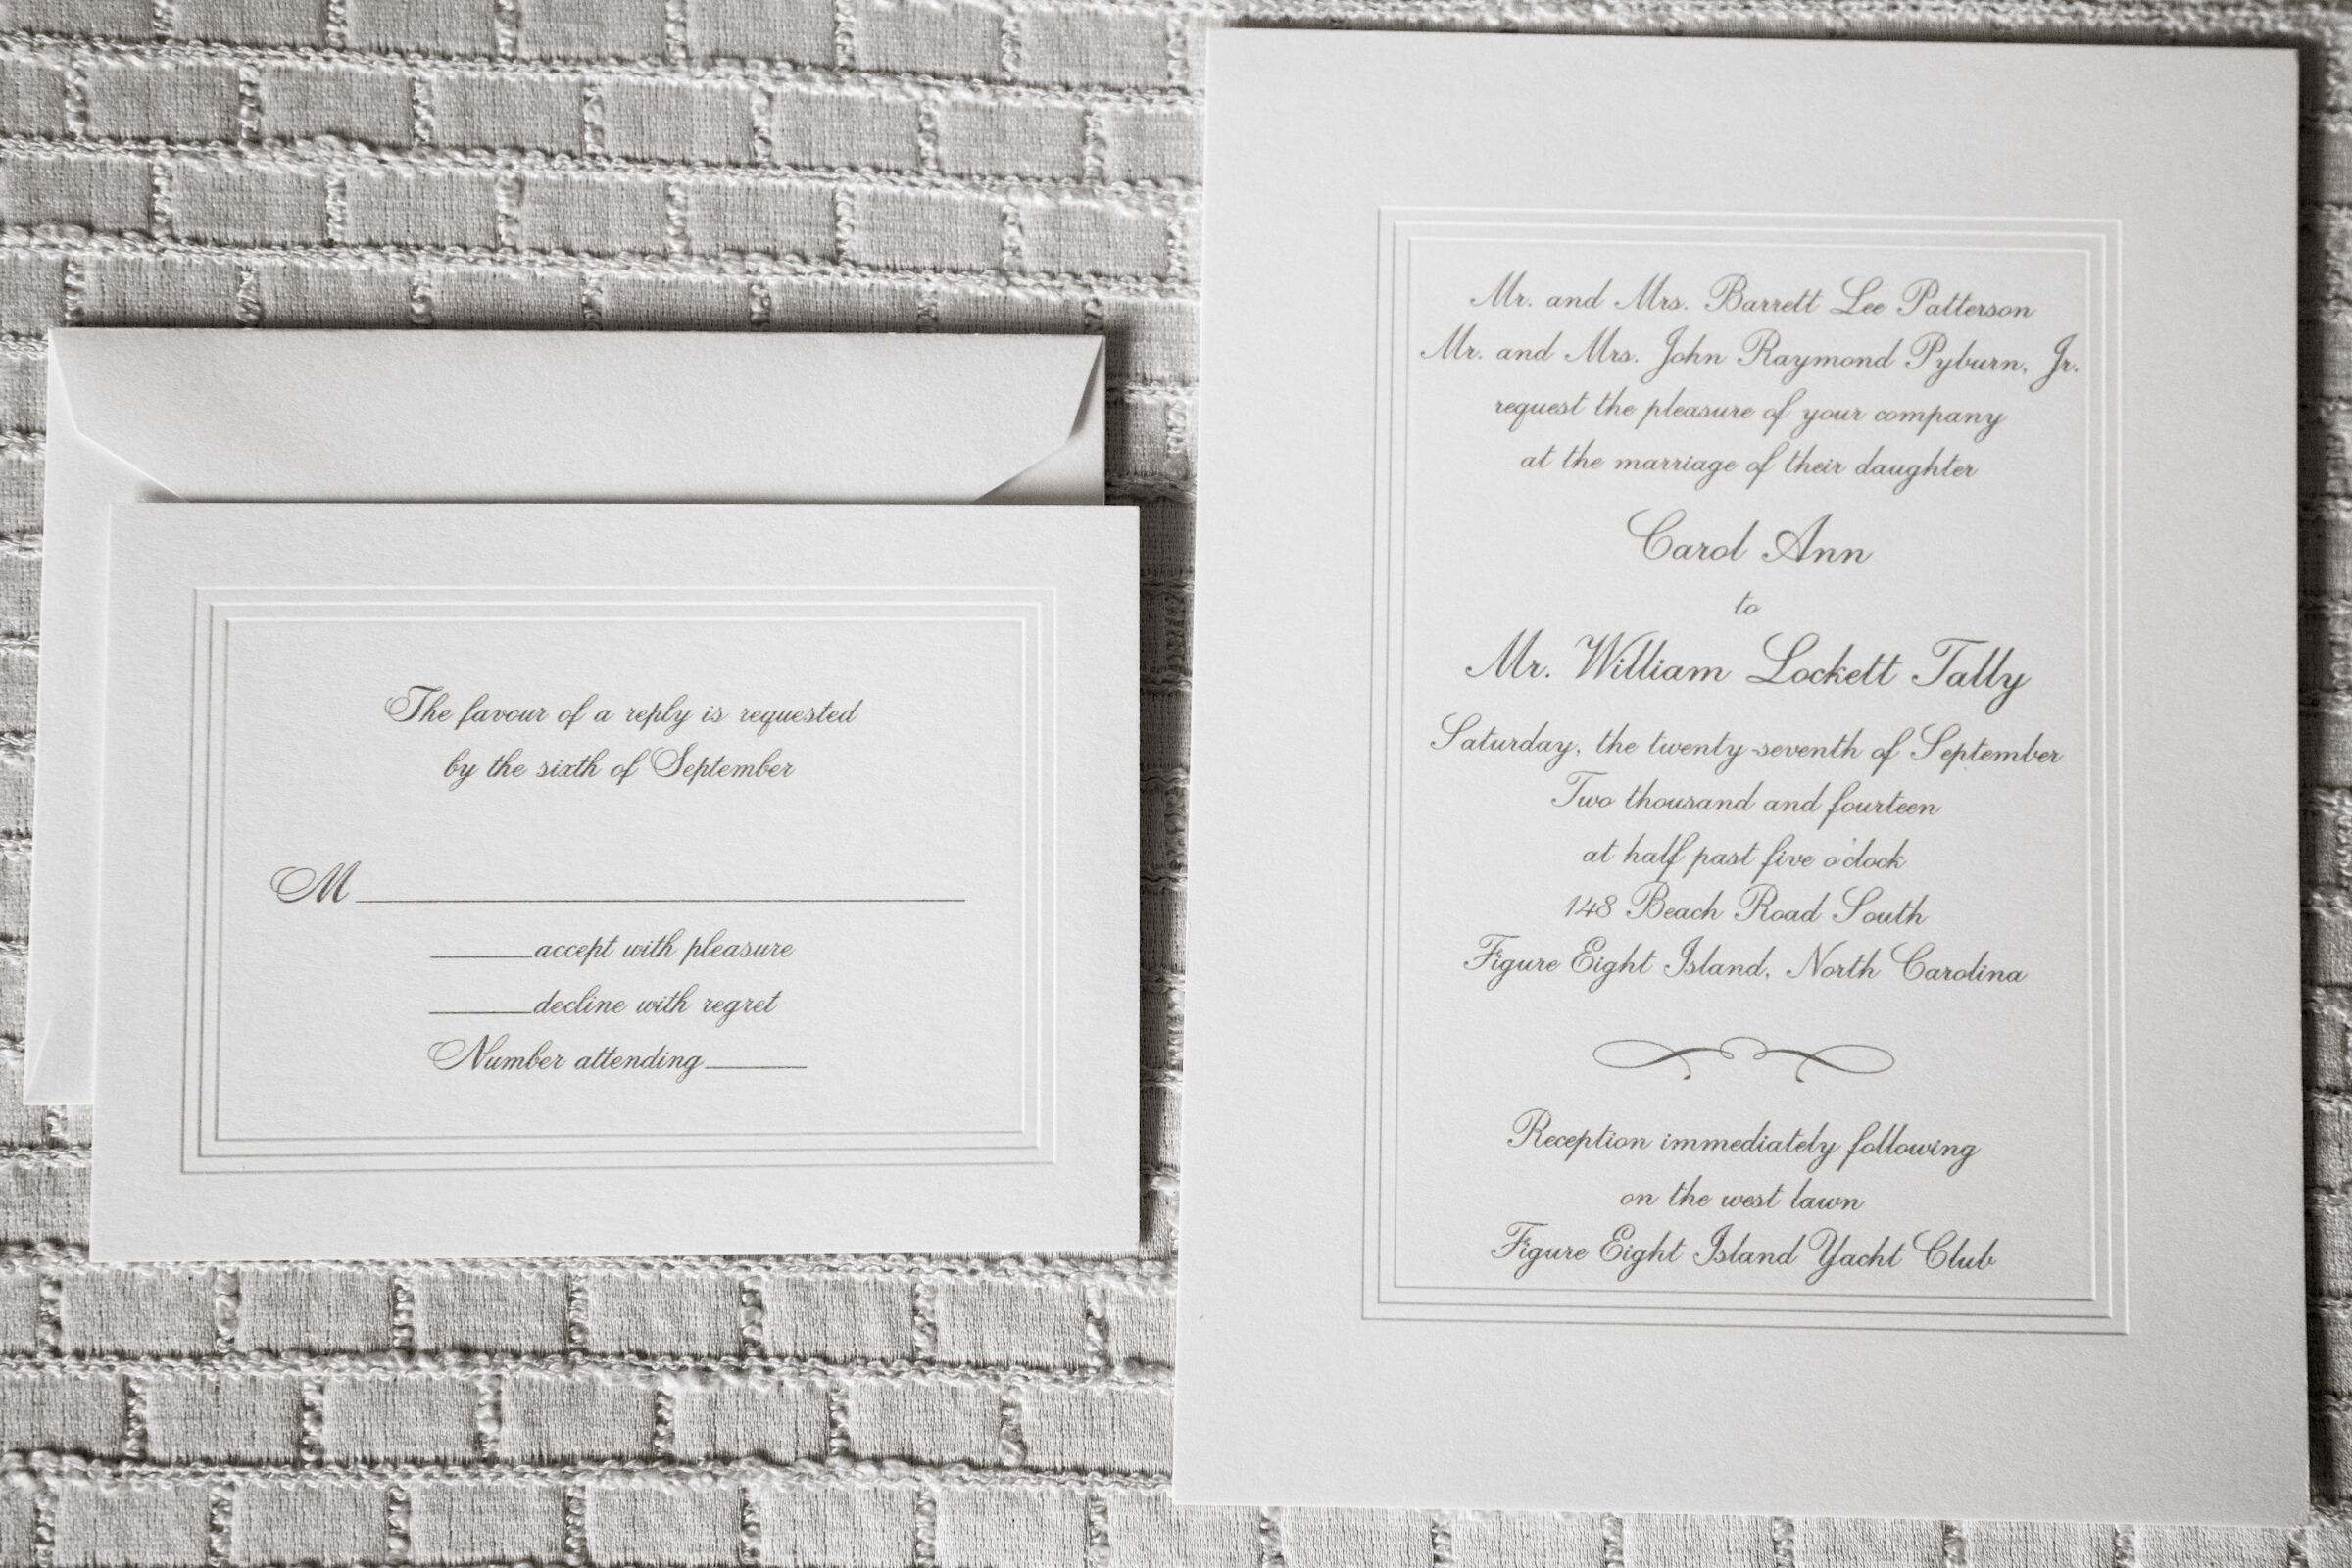 The favour of a reply is requested
by the sixth of September
M
accept with pleasure
decline with regret
Number attending
Mr. and Mrs. Barrett Lee Patterson
Mr. and Mrs. John Raymond Pyburn, Jr.
request the pleasure of your company
at the marriage of their daughter
Carol Ann
to
Mr. William Lockett Tally
Saturday, the twenty-seventh of September
Two thousand and fourteen
at half past five o'clock
148 Beach Road South
Figure Eight Island, North Carolina
Reception immediately following
on the west lawn
Figure Eight Island Yacht Club